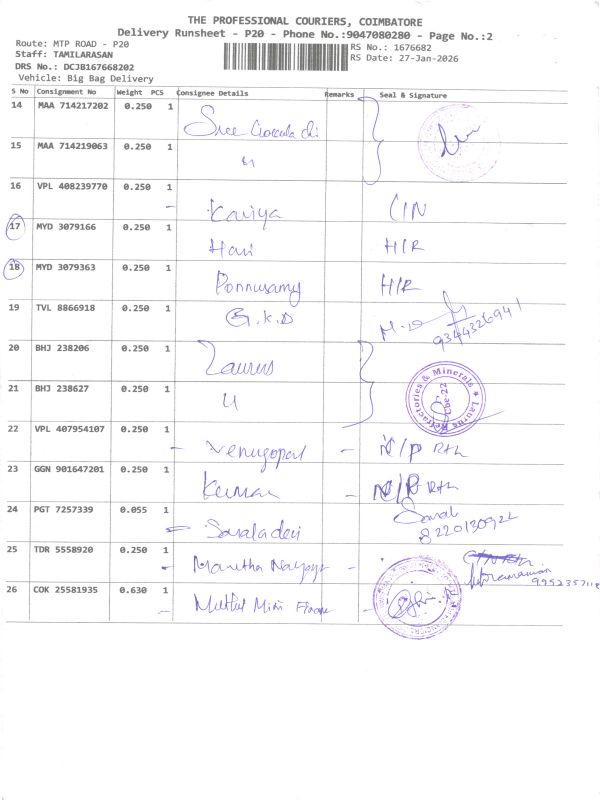 THE PROFESSIONAL COURIERS, COIMBATORE
Delivery Runsheet - P20 - Phone No.:9047080280 - Page No.:2
Route: MTP ROAD - P20
RS No.: 1676682
Staff: TAMILARASAN
RS Date: 27-Jan-2026
DRS No.: DCJB167668202
Vehicle: Big Bag Delivery
S No Consignment No Weight PCS Consignee Details Remarks Seal & Signature
14 MAA 714217202 0.250 1 Sree
15 MAA 714219063 0.250 1 "
16 VPL 408239770 0.250 1 Kaviya CIN
17 MYD 3079166 0.250 1 Hari H/R
18 MYD 3079363 0.250 1 Ponnusamy H/R
19 TVL 8866918 0.250 1 G.K.D 9344326941
20 BHJ 238206 0.250 1 Laurus
21 BHJ 238627 0.250 1 "
Laurus Refractories & Minerals
Cbe-22
22 VPL 407954107 0.250 1 Venugopal - N/P
23 GGN 901647201 0.250 1 Kumar -
24 PGT 7257339 0.055 1 Saraladevi Saral
8220130922
25 TDR 5558920 0.250 1 -
9952357118
26 COK 25581935 0.630 1 Muthut Mini -